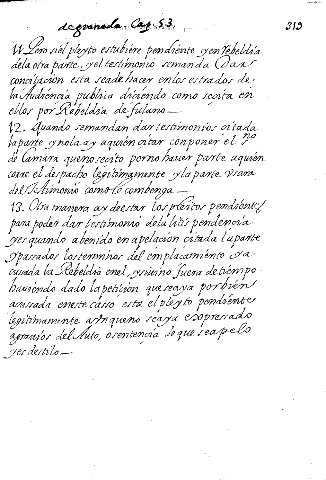 de granada. Cap. 53. 313
11. Pero si el pleyto estubiere pendiente y en Rebeldia
de la otra parte, y el testimonio semanda Dar
citacion esta seade hacer enlos estrados de
la Audiencia publica diciendo como secita en
ellos por Rebeldia de fulano —
12. Quando semandan dar testimonios citada
la parte y nola ay aquien citar conponer el
de Camara queno secito porno hacer parte aquien
corre el despacho legitimamente y la parte usara
del testimonio como le combenga —
13. Otra manera ay de estar los Pleitos pendientes
para poder dar testimonio dela litis pendencia
yes quando abenido en apelacion citada la parte
y pasados los terminos del emplacamiento y a
cusada la Rebeldia en el, y si vino fuera de tiempo
haviendo dado la peticion que se aya por bien
acusada eneste casso esta el pleyto pendiente
legitimamente aunque no se aya expressado
agravios del Auto, o sentencia de que se apelo
y es de stilo —